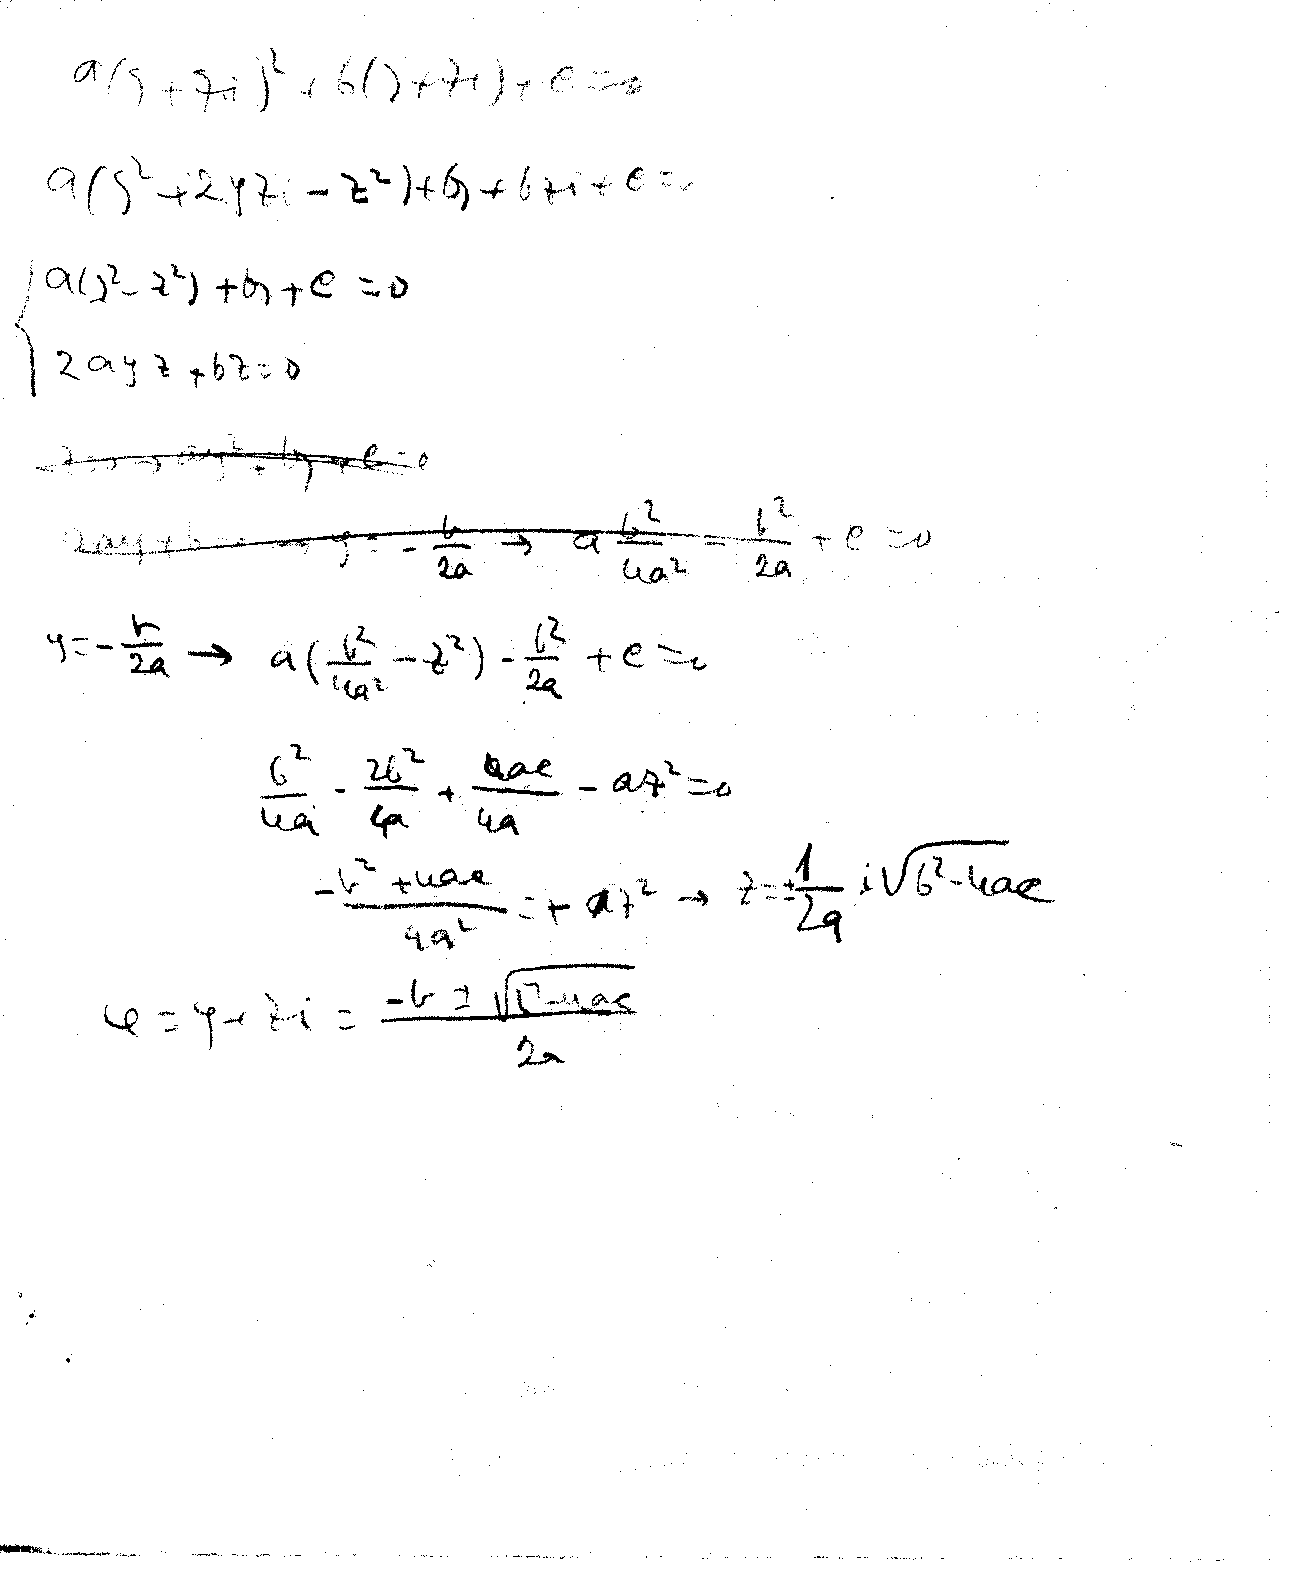 a(y+zi)²+b(y+zi)+c=0
a(y²+2yzi-z²)+by+bzi+c=0
a(y²-z²)+by+c=0
2ayz+bz=0
z=0→ay²+by+c=0
2ay+b=0→y=-b/2a→a b²/4a²-b²/2a+c=0
y=-b/2a→a(b²/4a²-z²)-b²/2a+c=0
b²/4a-2b²/4a+4ac/4a-az²=0
-b²+4ac/4a²=+az²→z=±1/2a i√b²-4ac
x=y+zi=-b±√b²-4ac/2a